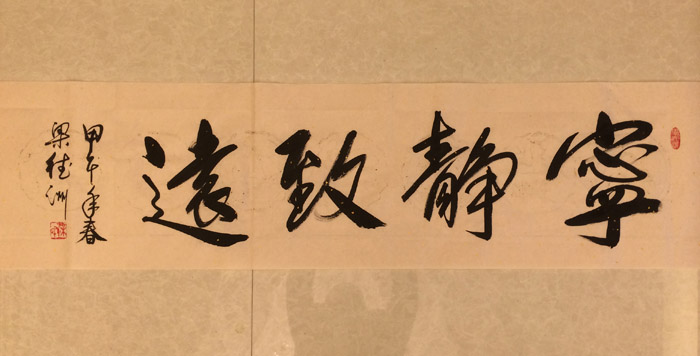 寧静致遠
甲午年春
梁洲